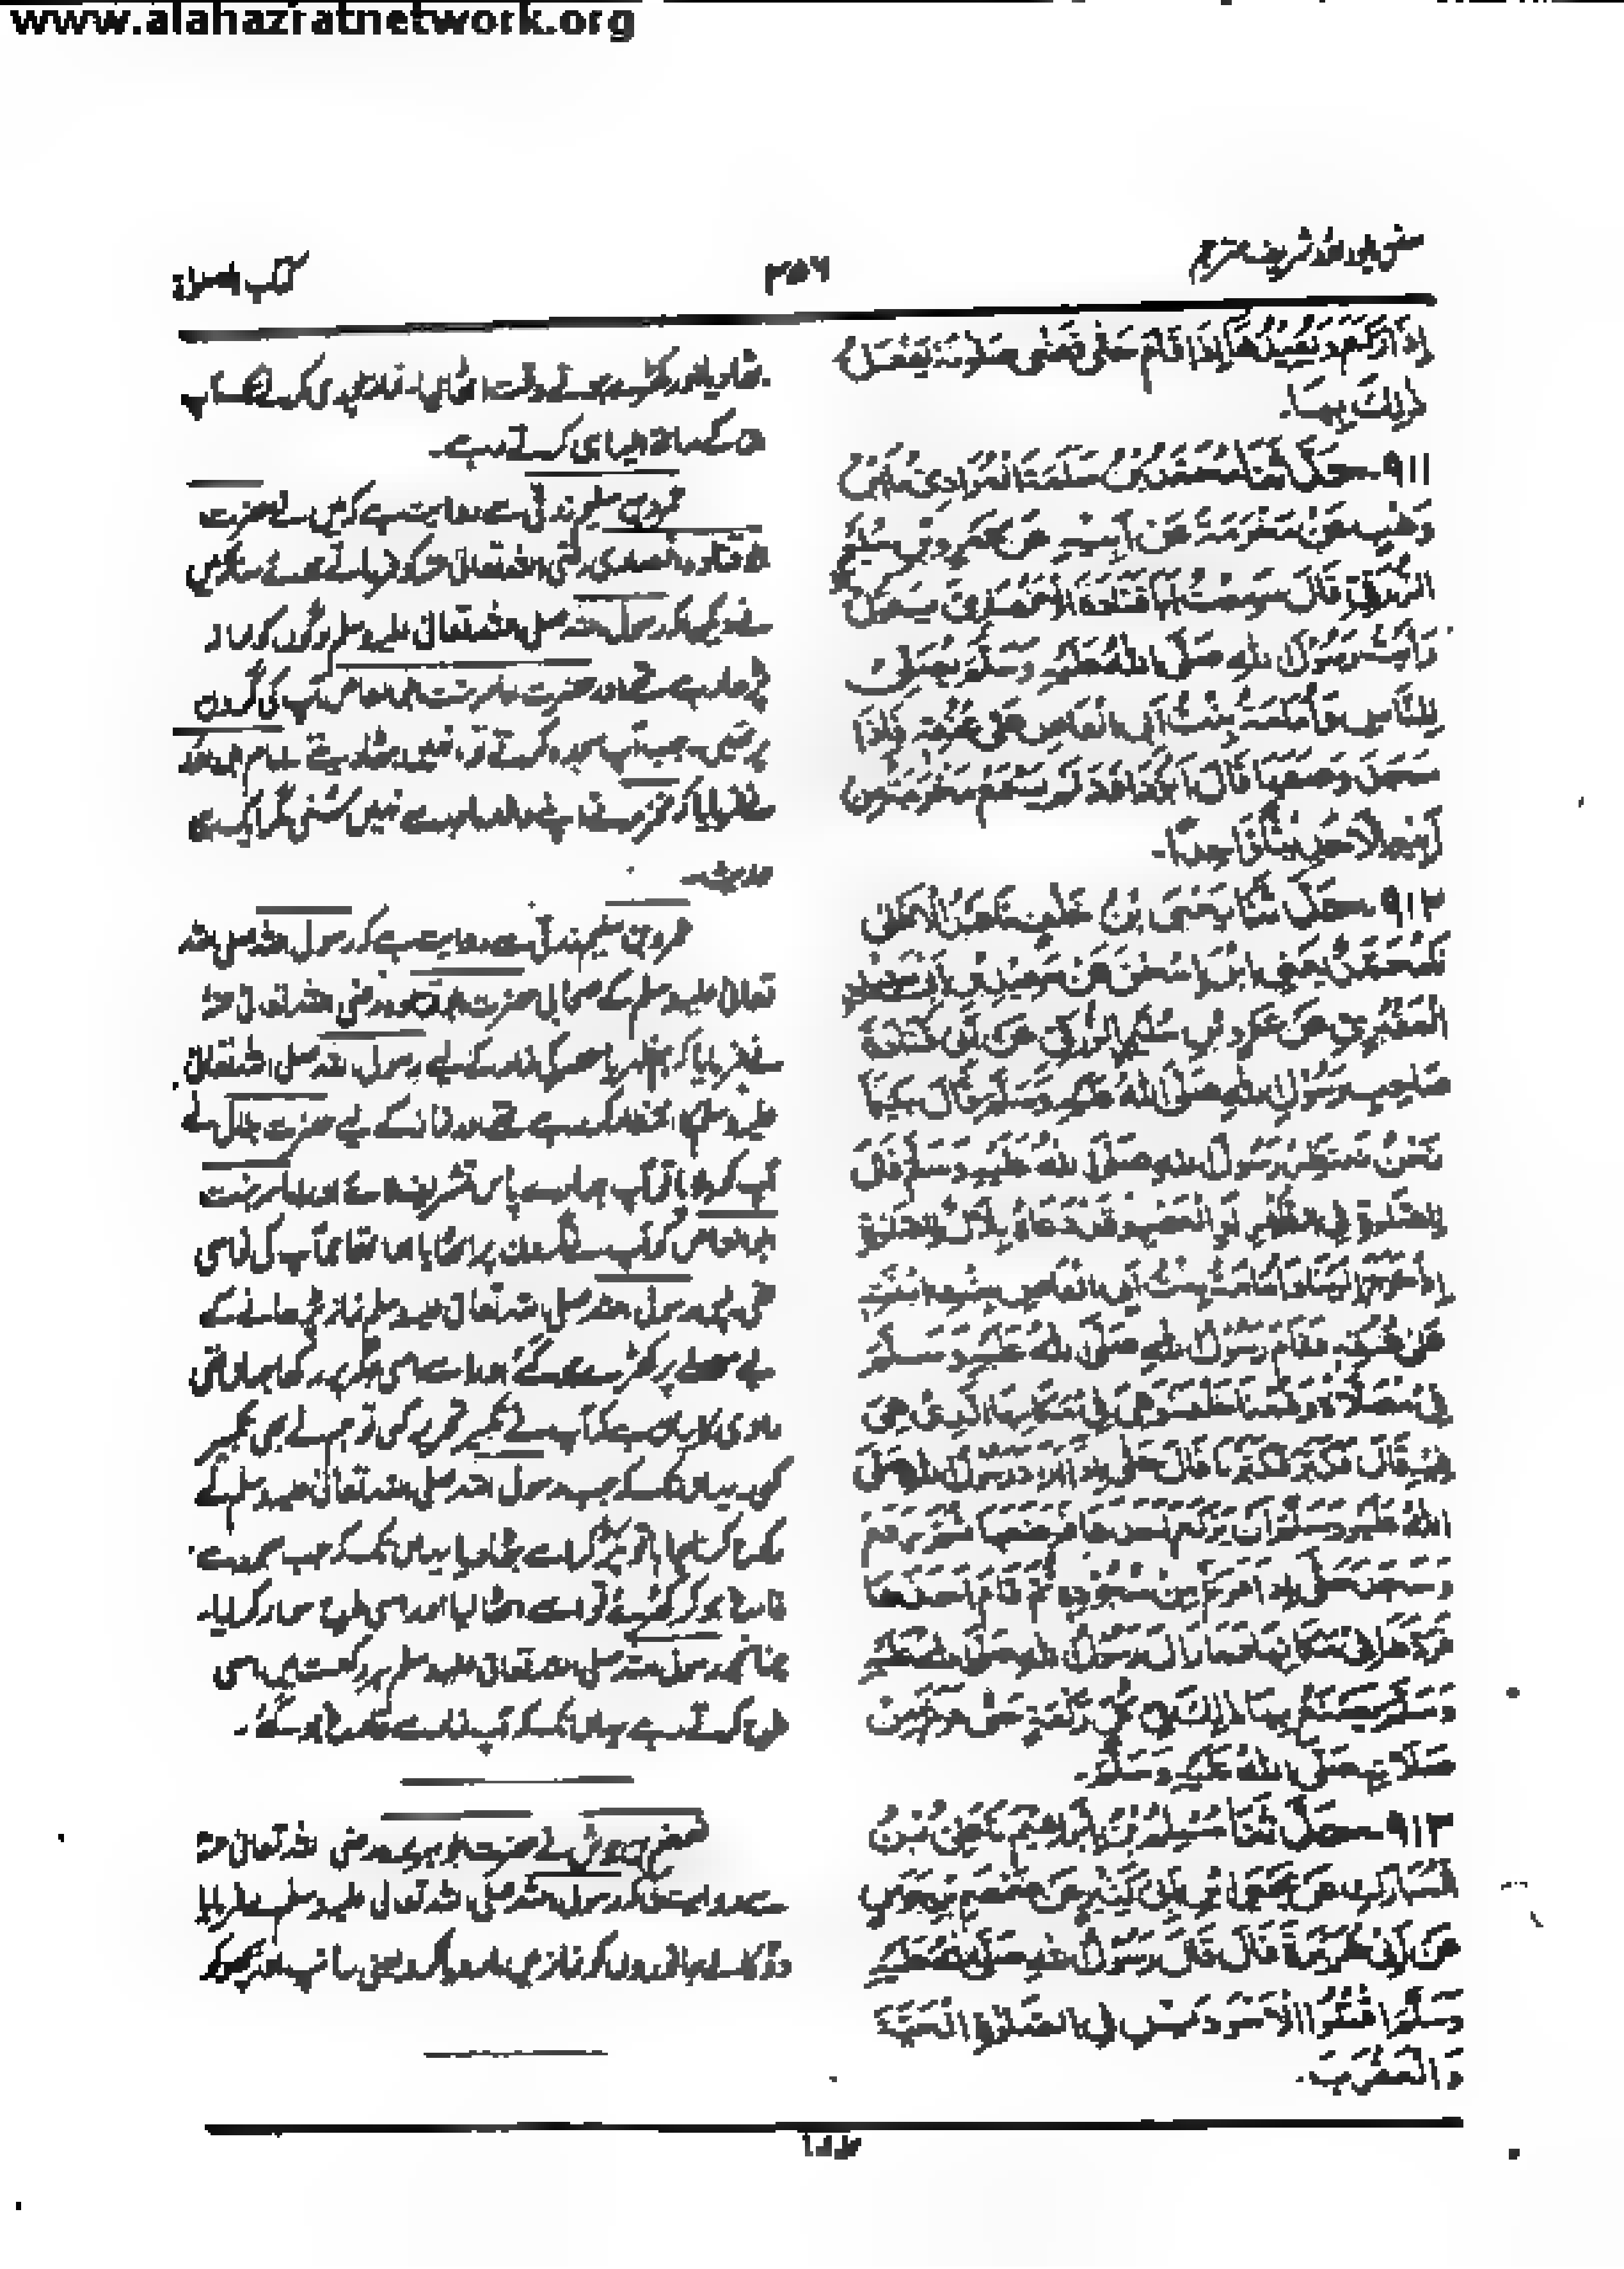 www.alahazratnetwork.org
سنن ابوداؤد شریف مترجم
۳۵۶
کتاب الصلوٰۃ
إِذَا رَكَعَ وَيُعِيدُهَا إِذَا قَامَ حَتَّى قَضَى صَلَوتَهُ يَفْعَلُ
ذٰلِكَ بِهَا۔
۹۱۱۔ حَدَّثَنَا مُحَمَّدُ بْنُ سَلَمَةَ الْمُرَادِيُّ نَا ابْنُ
وَهْبٍ عَنْ مَخْرَمَةَ عَنْ أَبِيْهِ عَنْ عَمْرِو بْنِ سُلَيْمٍ
الزُّرَقِيِّ قَالَ سَمِعْتُ أَبَا قَتَادَةَ الْأَنْصَارِيَّ يَقُولُ
رَأَيْتُ رَسُولَ اللهِ صَلَّى اللهُ عَلَيْهِ وَسَلَّمَ يُصَلِّي
لِلنَّاسِ وَأُمَامَةُ بِنْتُ أَبِي الْعَاصِ عَلَى عُنُقِهِ فَإِذَا
سَجَدَ وَضَعَهَا قَالَ أَبُو دَاوُدَ لَمْ يَسْمَعْ مَخْرَمَةُ مِنْ
أَبِيهِ إِلَّا حَدِيثًا وَاحِدًا۔
۹۱۲۔ حَدَّثَنَا يَحْيَى بْنُ خَلَفٍ نَا عَبْدُ الْأَعْلَى
نَا مُحَمَّدٌ يَعْنِي ابْنَ إِسْحٰقَ عَنْ سَعِيْدِ بْنِ أَبِي سَعِيْدٍ
الْمَقْبُرِيِّ عَنْ عَمْرِو بْنِ سُلَيْمٍ الزُّرَقِيِّ عَنْ أَبِي قَتَادَةَ
صَاحِبِ رَسُولِ اللهِ صَلَّى اللهُ عَلَيْهِ وَسَلَّمَ قَالَ بَيْنَمَا
نَحْنُ نَنْتَظِرُ رَسُولَ اللهِ صَلَّى اللهُ عَلَيْهِ وَسَلَّمَ فِي
لِلصَّلٰوةِ فِي الظُّهْرِ أَوِ الْعَصْرِ وَقَدْ دَعَاهُ بِلَالٌ لِلصَّلٰوةِ
إِذْ خَرَجَ إِلَيْنَا وَأُمَامَةُ بِنْتُ أَبِي الْعَاصِ بِنْتُ ابْنَتِهِ
عَلَى عُنُقِهِ فَقَامَ رَسُولُ اللهِ صَلَّى اللهُ عَلَيْهِ وَسَلَّمَ
فِي مُصَلَّاهُ وَقُمْنَا خَلْفَهُ وَهِيَ فِي مَكَانِهَا الَّذِي هِيَ
فِيْهِ قَالَ فَكَبَّرَ فَكَبَّرْنَا قَالَ حَتَّى إِذَا أَرَادَ رَسُولُ اللهِ صَلَّى
اللهُ عَلَيْهِ وَسَلَّمَ أَنْ يَرْكَعَ أَخَذَهَا فَوَضَعَهَا ثُمَّ رَكَعَ
وَسَجَدَ حَتَّى إِذَا فَرَغَ مِنْ سُجُودِهِ ثُمَّ قَامَ أَخَذَهَا
فَرَدَّهَا فِي مَكَانِهَا فَمَا زَالَ رَسُولُ اللهِ صَلَّى اللهُ عَلَيْهِ
وَسَلَّمَ يَصْنَعُ بِهَا ذٰلِكَ فِي كُلِّ رَكْعَةٍ حَتَّى فَرَغَ مِنْ
صَلَاتِهِ صَلَّى اللهُ عَلَيْهِ وَسَلَّمَ۔
۹۱۳۔ حَدَّثَنَا مُسْلِمُ بْنُ إِبْرَاهِيْمَ نَا عَلِيُّ بْنُ
الْمُبَارَكِ عَنْ يَحْيَى بْنِ أَبِي كَثِيْرٍ عَنْ ضَمْضَمِ بْنِ جَوْسٍ
عَنْ أَبِي هُرَيْرَةَ قَالَ قَالَ رَسُولُ اللهِ صَلَّى اللهُ عَلَيْهِ
وَسَلَّمَ اقْتُلُوا الْأَسْوَدَيْنِ فِي الصَّلٰوةِ الْحَيَّةَ
وَالْعَقْرَبَ۔
اور کھڑے ہوتے وقت اٹھالیا۔ نماز پوری کرنے تک آپ
ان کے ساتھ ایسا ہی کرتے رہے۔
عمرو بن سلیم زرقی سے روایت ہے کہ میں نے حضرت
ابو قتادہ انصاری رضی اللہ تعالیٰ عنہ کو فرماتے ہوئے سنا کہ میں
نے دیکھا کہ رسول اللہ صلی اللہ تعالیٰ علیہ وسلم لوگوں کو نماز
پڑھا رہے تھے اور حضرت امامہ بنت ابی العاص آپ کی گردن
پر تھیں۔ جب آپ سجدہ کرتے تو انہیں بٹھا دیتے۔ امام ابوداؤد
نے فرمایا کہ مخرمہ نے اپنے والد ماجد سے نہیں سنی مگر ایک ہی
حدیث۔
عمرو بن سلیم زرقی سے روایت ہے کہ رسول اللہ صلی اللہ
تعالیٰ علیہ وسلم کے صحابی حضرت ابوقتادہ رضی اللہ تعالیٰ عنہ
نے فرمایا کہ ہم ظہر یا عصر کی نماز کے لیے رسول اللہ صلی اللہ تعالیٰ
علیہ وسلم کا انتظار کر رہے تھے اور نماز کے لیے حضرت بلال نے
آپ کو بلایا تو آپ ہمارے پاس تشریف لائے اور امامہ بنت
ابی العاص کو آپ نے گردن پر اٹھایا ہوا تھا جو آپ کی نواسی
تھی پس رسول اللہ صلی اللہ تعالیٰ علیہ وسلم نماز پڑھانے کے
لیے مصلے پر کھڑے ہو گئے اور اسے اسی جگہ پر رکھا جہاں تھی
راوی کا بیان ہے کہ آپ نے تکبیر تحریمہ کہی تو ہم نے بھی تکبیر
کہی۔ یہاں تک کہ جب رسول اللہ صلی اللہ تعالیٰ علیہ وسلم نے
رکوع کرنا چاہا تو پکڑ کر اسے بٹھا دیا یہاں تک کہ جب سجدوں سے
فارغ ہو کر کھڑے ہوئے تو اسے اٹھا لیا اور اسی طرح سوار کر لیا۔
چنانچہ رسول اللہ صلی اللہ تعالیٰ علیہ وسلم ہر رکعت میں اسی
طرح کرتے رہے یہاں تک کہ آپ نماز سے فارغ ہو گئے۔
ضمضم بن جوس نے حضرت ابوہریرہ رضی اللہ تعالیٰ عنہ
سے روایت کی کہ رسول اللہ صلی اللہ تعالیٰ علیہ وسلم نے فرمایا
دو کالے جانوروں کو نماز میں مار دیا کرو یعنی سانپ اور بچھو کو